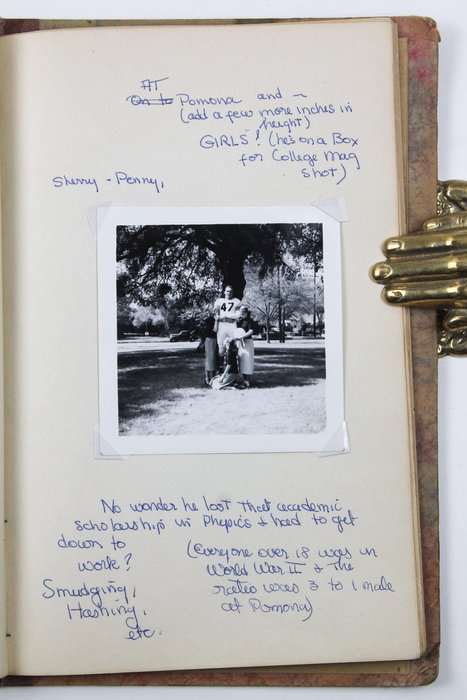 AT
On to Pomona and –
(add a few more inches in
height)
GIRLS! (he's on a Box
for College Mag
shot)
Sherry - Penny,
47
No wonder he lost that academic
scholarship in Phepics & had to get
down to
work?
Smudging,
Hashing,
etc.
(Everyone over 18 was in
World War II & the
ratio was 3 to 1 male
at Pomona)